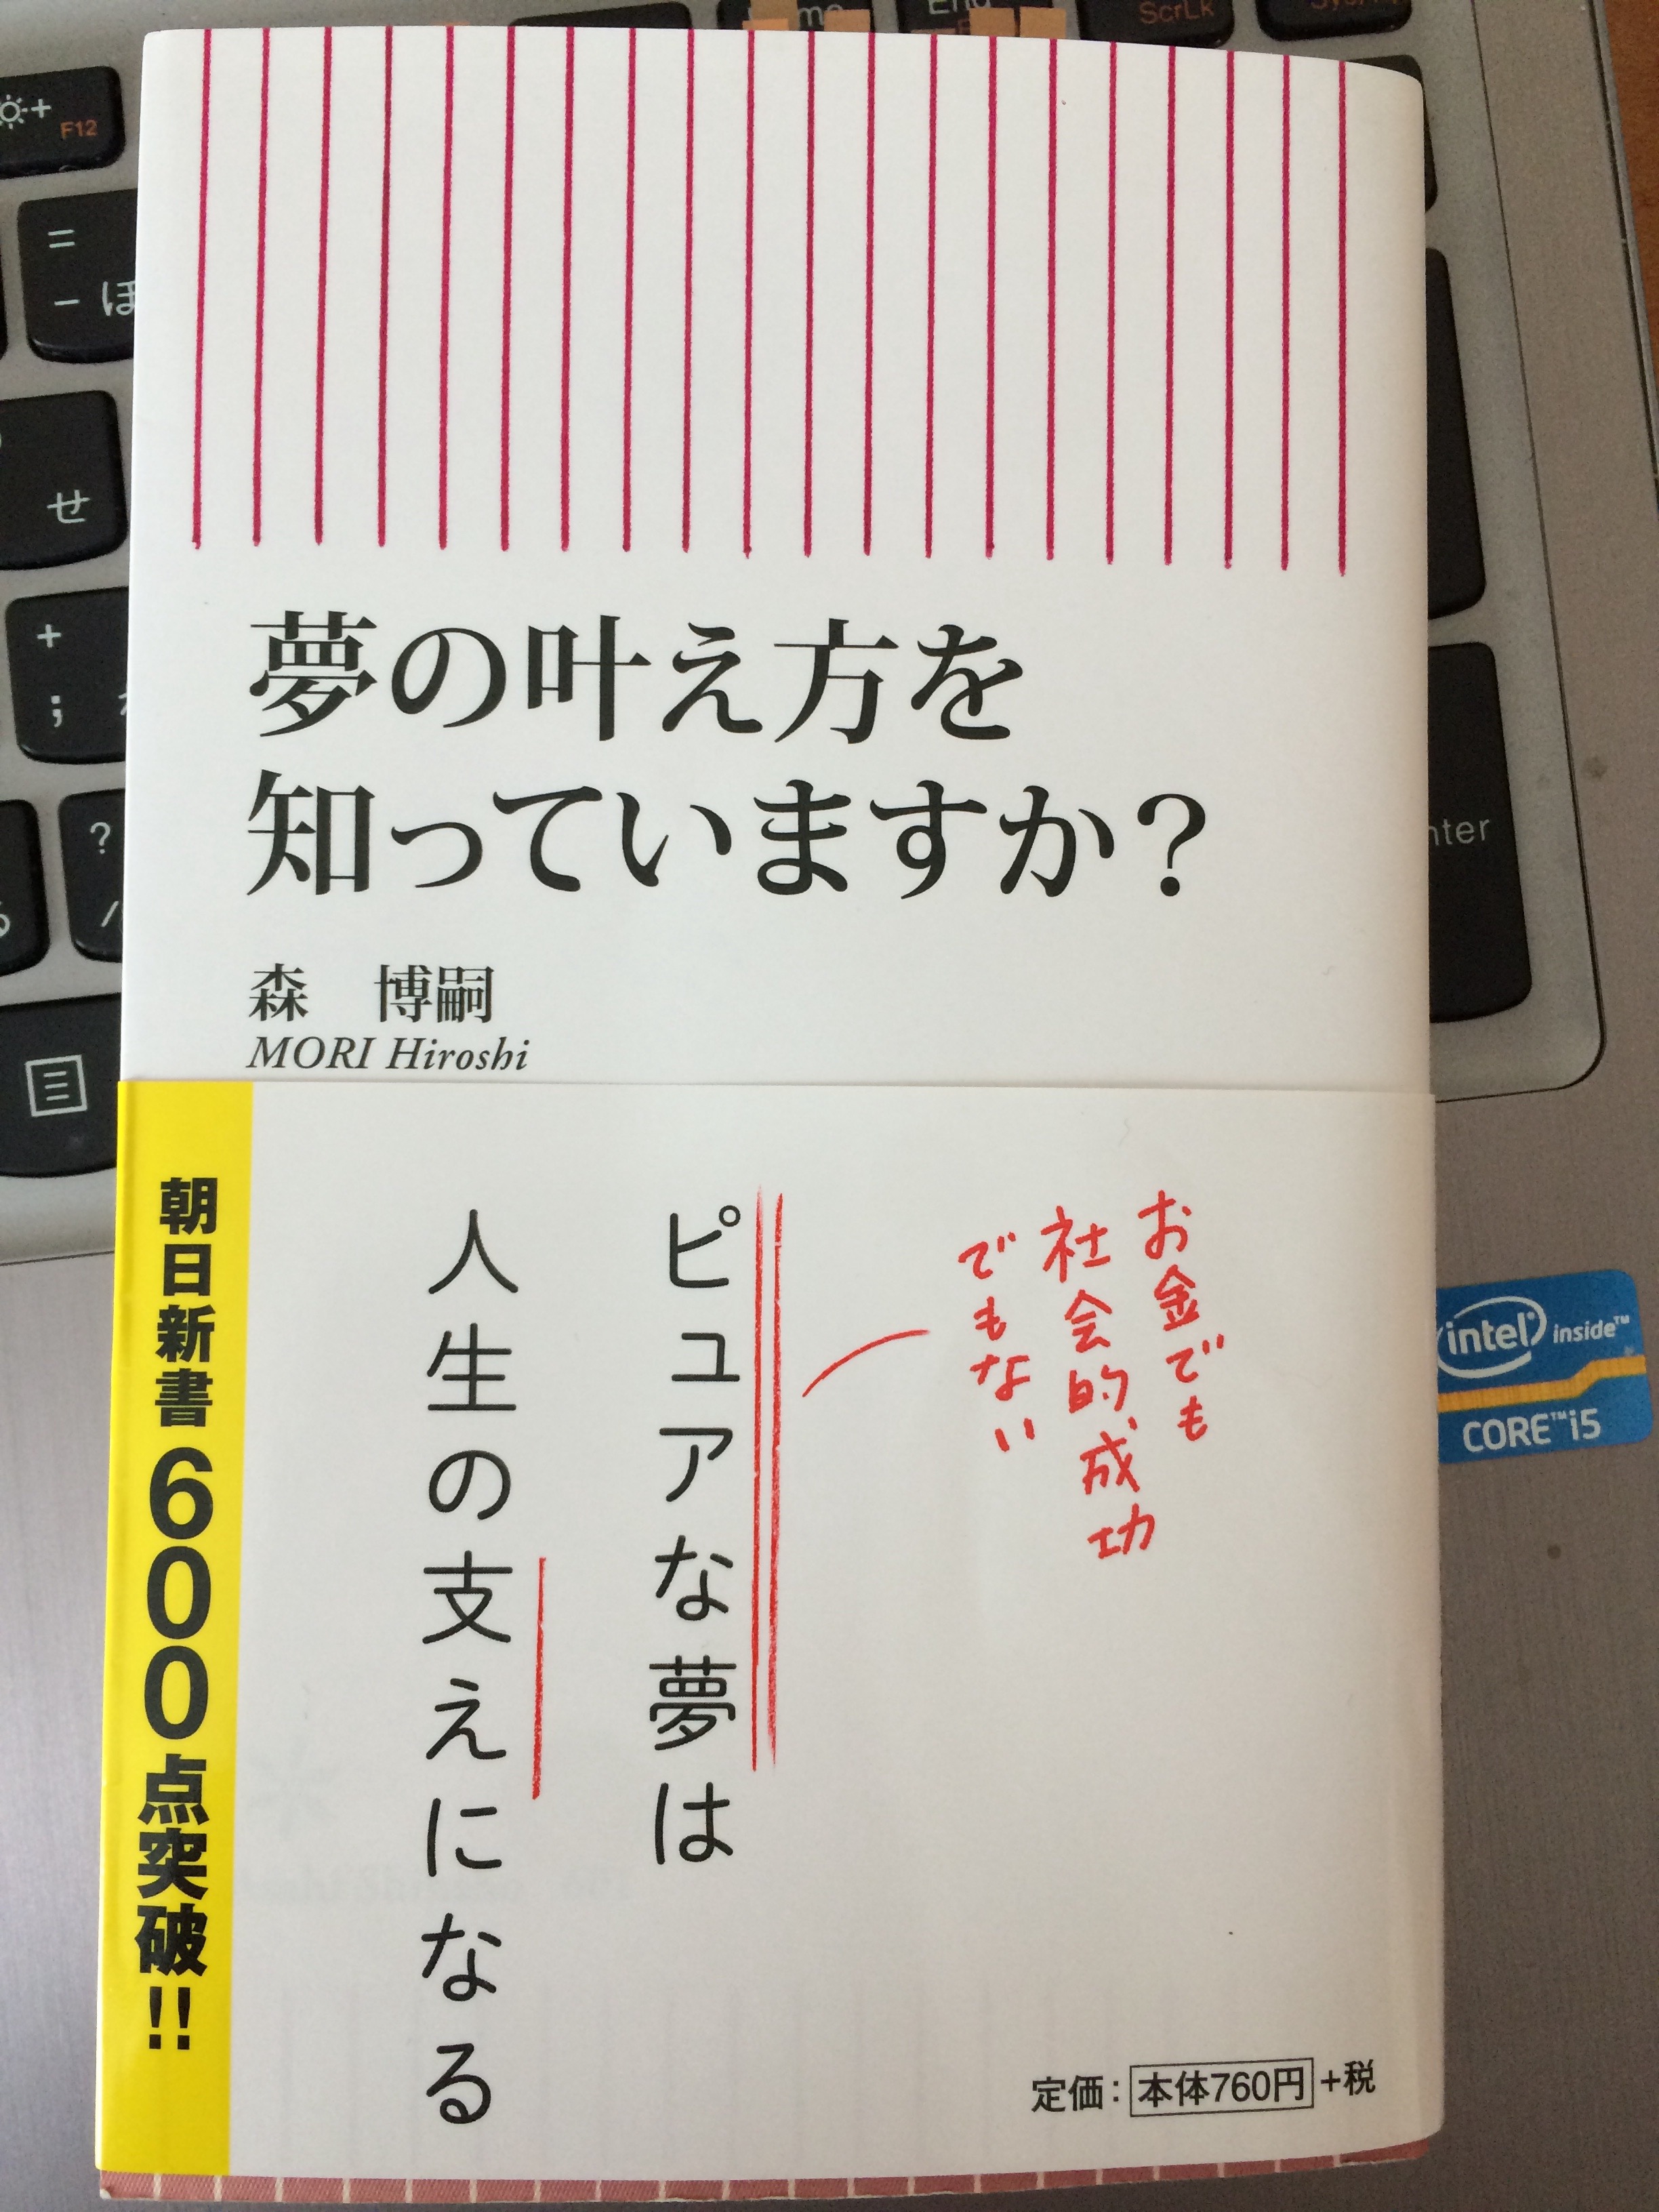 夢の叶え方を
知っていますか?
森 博嗣
MORI Hiroshi
お金でも
社会的成功
でもない
ピュアな夢は
人生の支えになる
朝日新書600点突破!!
定価:本体760円+税
intel inside™
CORE™i5
F12
ScrLk
End
=
- ほ
せ
+
;
?
nter